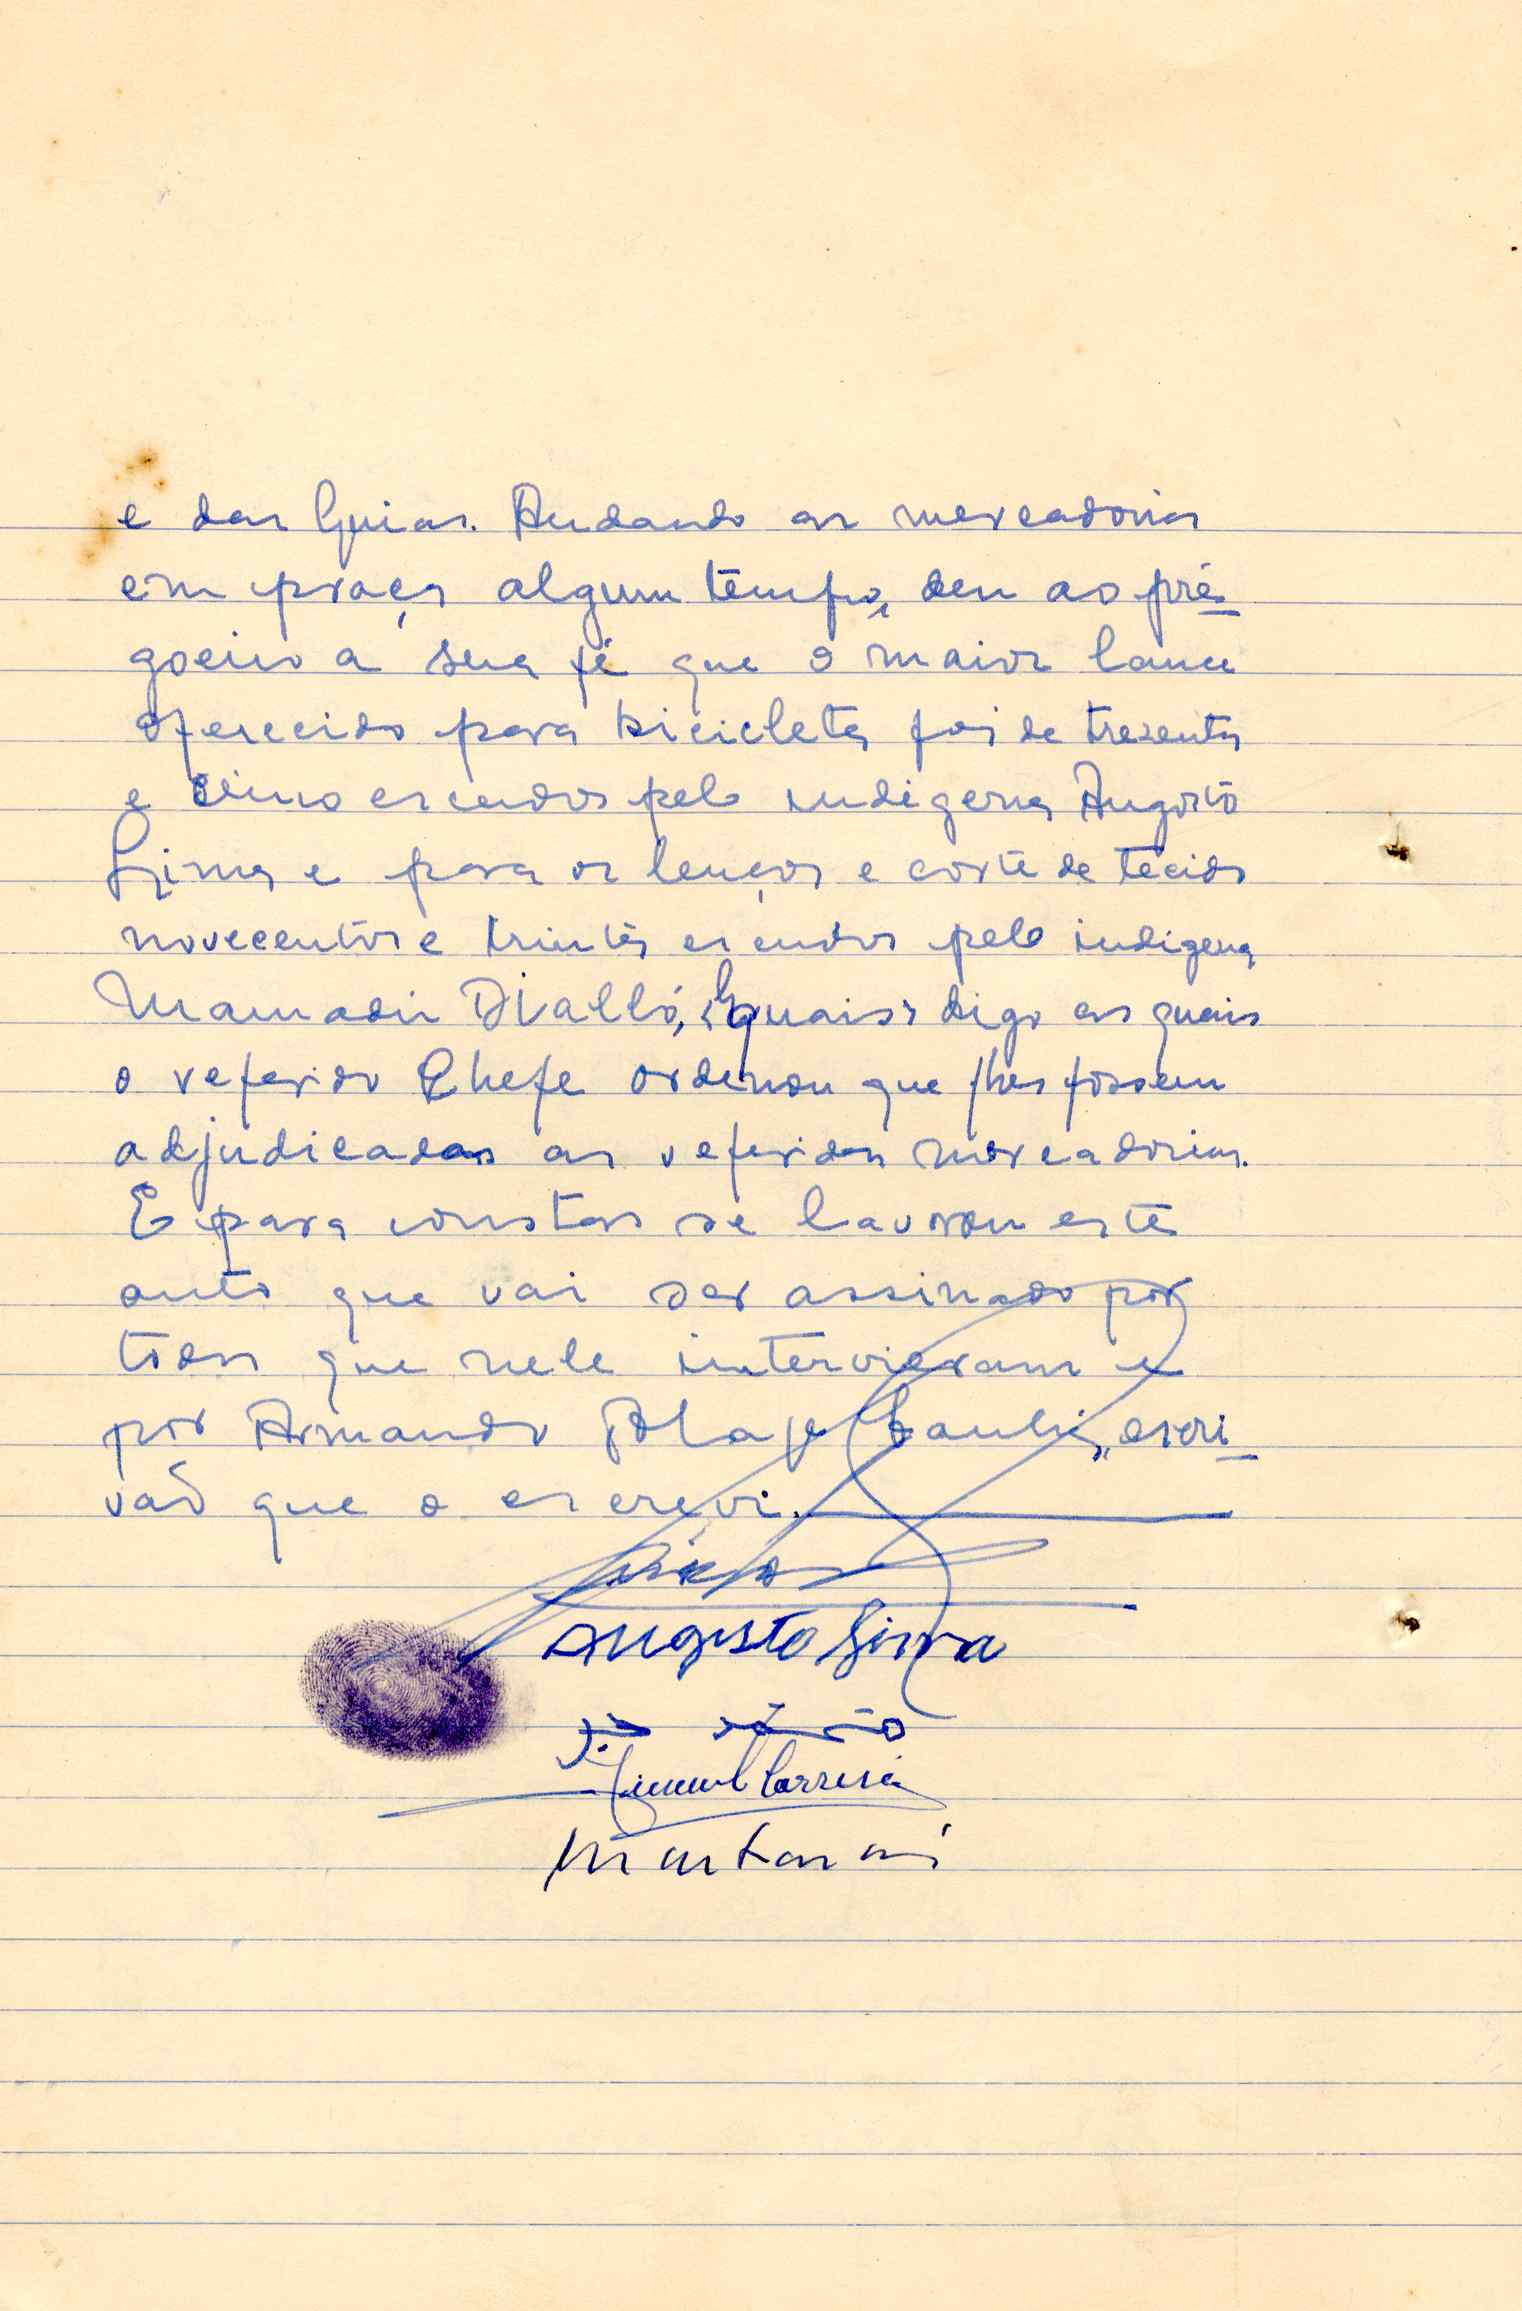 e das Guias. Andando as mercadorias
em praça algum tempo, deu ao pré-
goeiro a sua fé que o maior lance
oferecido para bicicleta foi de trezentos
e escudos pelo indigena Augosto
Lima e para os lenços e corte de tecido
novecentos e trinta escudos pelo indigena
Mamadú Dialló, quais digo as quais
o referido Chefe ordenou que lhes fossem
adjudicadas as referidas mercadorias.
E para constar se lavrou este
auto que vai ser assinado por
todos que nele intervieram e
por Armando escri-
vão que o escrevi.
Augosto Lima
Correia